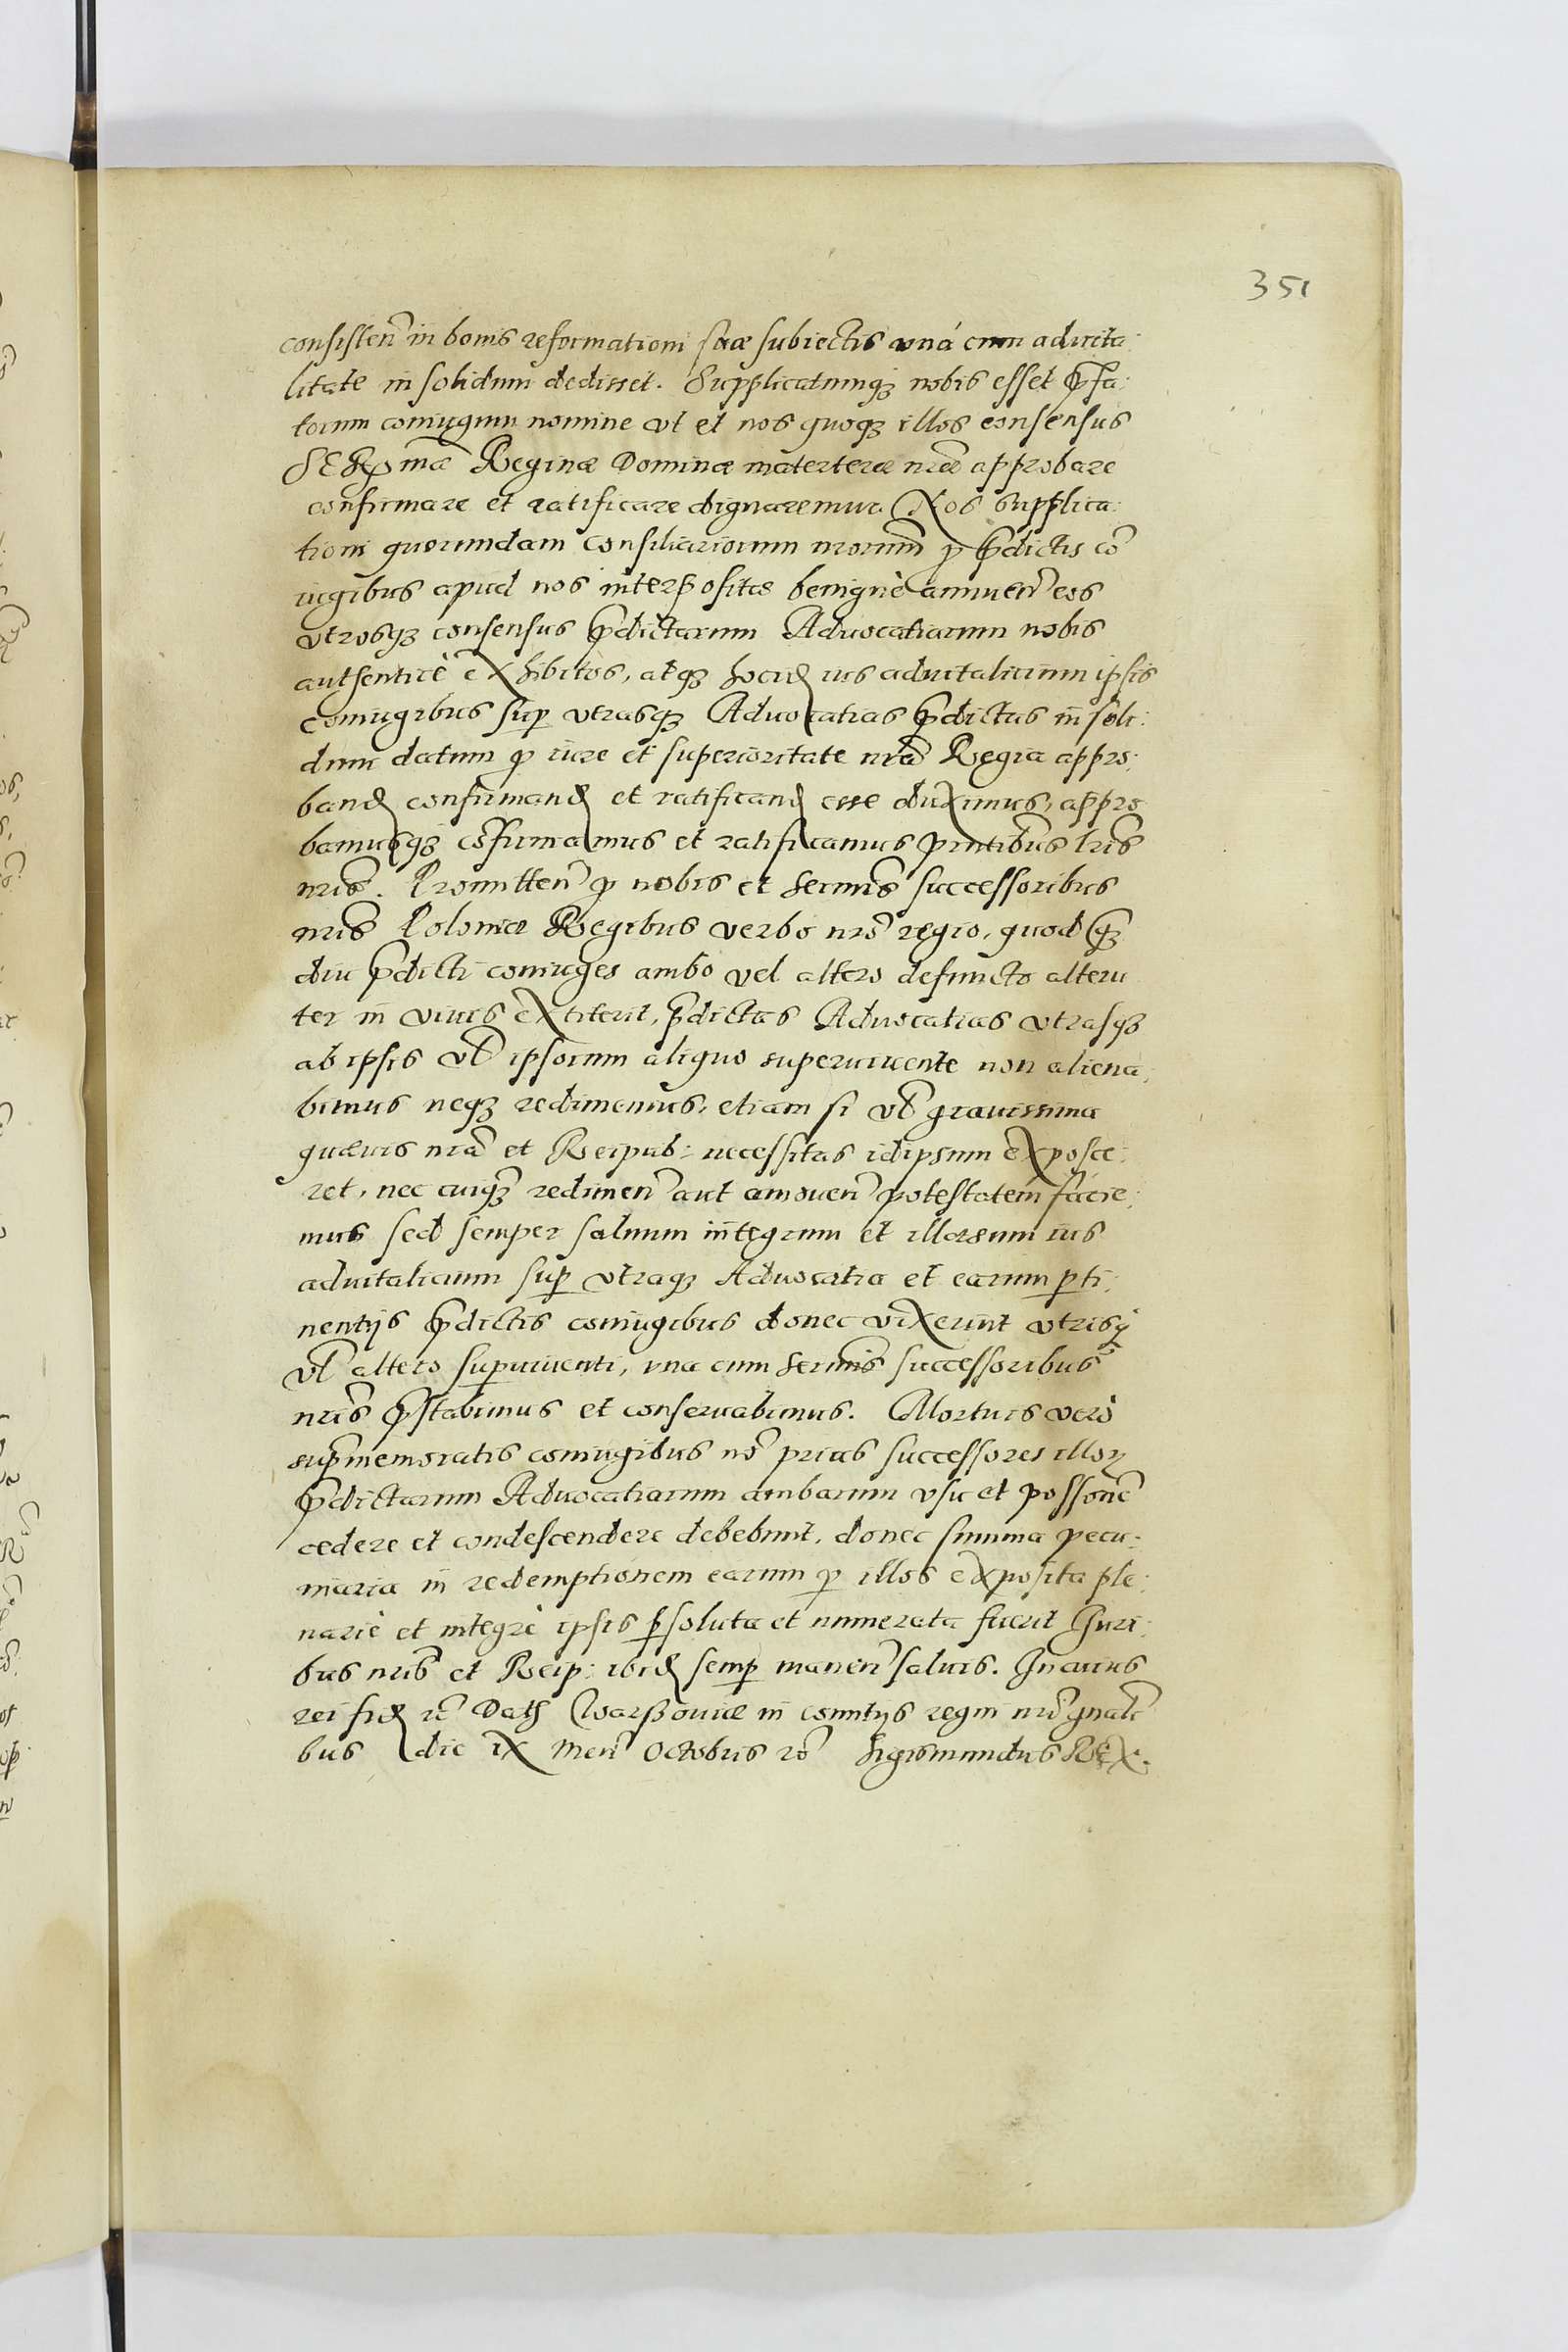 351
consisten̄ in bonis reformationi suæ subiectis vná cum aduita:
litate in solidum dedisset. Supplicatumq3 nobis esset p̄fa:
torum coniugum nomine vt et nos quoq3 illos consensus
SERmæ Reginæ Dominæ materteræ nr̄æ approbare
confirmare et ratificare dignaremur. Nos supplica:
tioni quorundam Consiliariorum nrorum̄ p p̄dictis cō
iugibus apud nos interpositæ benignè annuen̄ eos
vtrosq3 consensus p̄dictarum Aduocatiarum nobis
authenticè exhibitos, atq3 hocid ius aduitalitium ipsis
coniugibus sup vtrasq3 Aduocatias p̄dictas in soli:
dum datum p iure et superioritate nrā Regia appro:
band confirmand et ratificand esse duximus, appro
bamusq3 cōfirmamus et ratificamus pn̄tibus lrīs
nrīs. Promitten̄ p nobis et sermīs successoribus
nrīs Poloniæ Regibus verbo nrō regio, quod q̄3
diu p̄dicti coniuges ambo vel altero defuncto alteru
ter in viuis extiterit, p̄dictas Aduocatias vtrasq3
ab ipsis vl̄ ipsorum aliquo superuiuente non aliena:
bimus neq3 redimemus, etiam si vl̄ grauissima
quæuis nrā et Reipub: necessitas idipsum exposce:
ret, nec cuiq̄3 redimen̄ aut amouen̄ potestatem facie:
mus sed semper saluum integrum et illæsum ius
aduitalicium sup vtraq3 Aduocatia et earum pti:
nentijs p̄dictis coniugibus donec vixerint vtrisq3
vl̄ altero supuiuenti, vna cum sermīs successoribus
nrīs p̄stabimus et conseruabimus. Mortuis verò
supmemoratis coniugibus nō prius successores illorȝ
p̄dictarum Aduocatiarum ambarum vsu et possonē
cedere et condescendere debebunt, donec summa pecu:
niaria in redemptionem earum p illos exposita ple:
nariè et integrè ipsis psoluta et numerata fuerit Juri:
bus nrīs et Reip: ibid semp manen̄ saluis. In cuius
rei fid rc̄ Dath Warssouiæ in comitijs regni nrī gnalī
bus die ix men̄ Octobris rō Sigismundus REX.